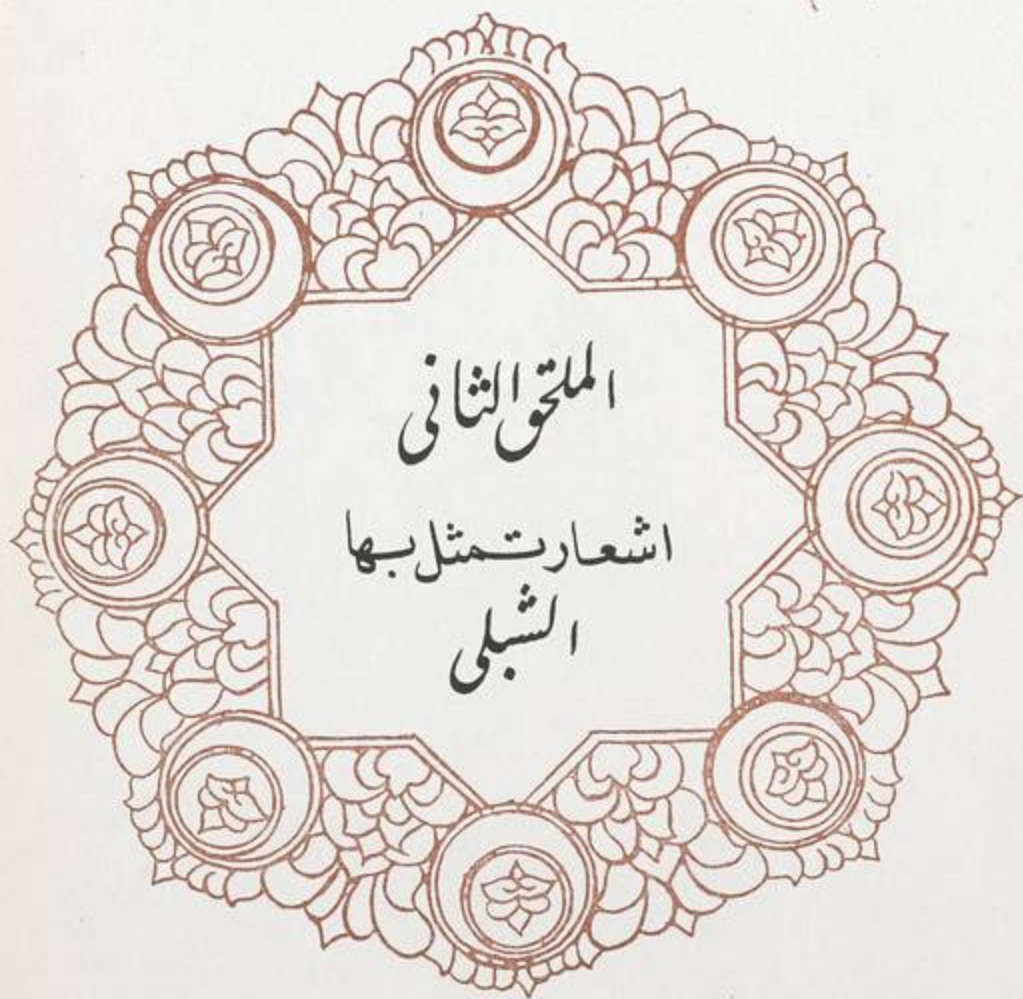 الملحق الثانى
اشعار تمثل بها
الشبلى